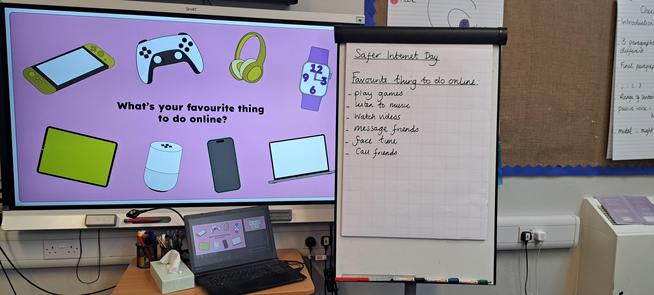 SMART
What's your favourite thing
to do online?
12
9 3
6
Safer Internet Day
Favourite thing to do online.
- play games
- listen to music
- Watch videos
- message friends
- face time
- Call friends
Introduction
3 paragraphs
different
Final paragraph